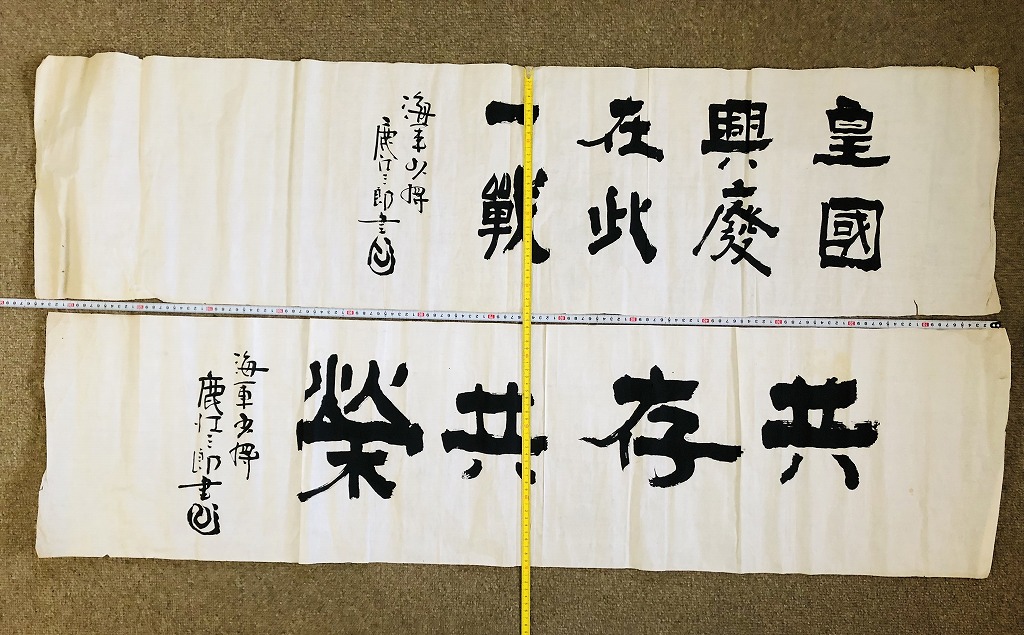 皇國
興廢
在此
一戰
海軍少将
鹿江三郎書
共存共榮
海軍少将
鹿江三郎書